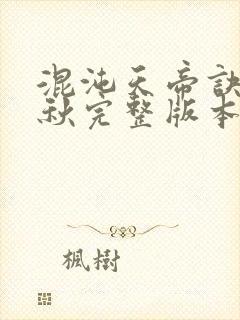 混沌天帝訣
秋完整版本
楓樹